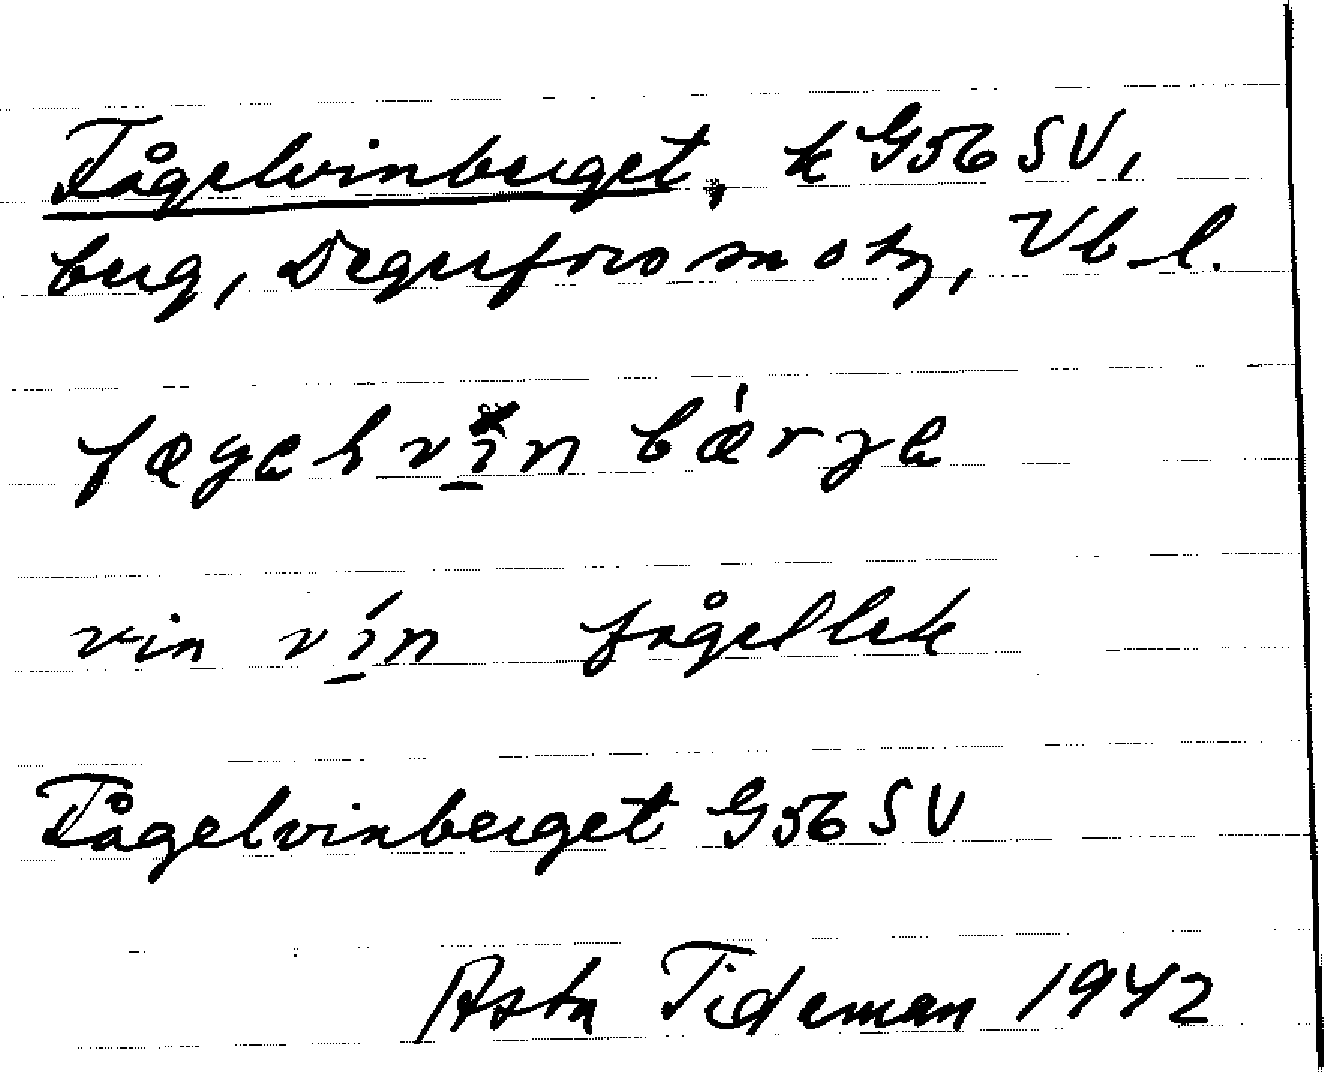 Fågelvinberget, k G56 SV,
berg, Degerfors sn o tg, Vb. l.
vin vín fågellek
Fågelvinberget G56 SV
Asta Tideman 1942